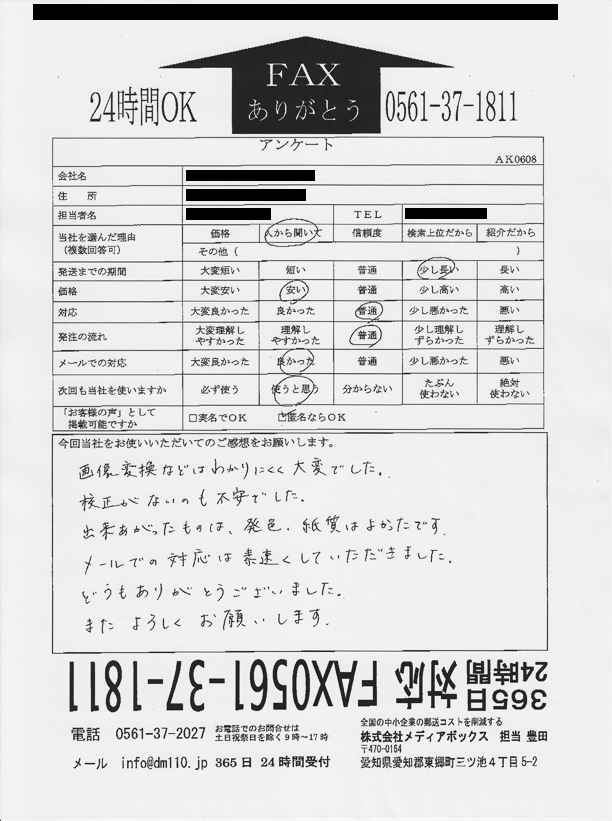 FAX
ありがとう
24時間OK
0561-37-1811
アンケート
AK0608
会社名
住　所
担当者名　TEL
当社を選んだ理由（複数回答可）　価格　人から聞いて　信頼度　検索上位だから　紹介だから
その他（　）
発送までの期間　大変短い　短い　普通　少し長い　長い
価格　大変安い　安い　普通　少し高い　高い
対応　大変良かった　良かった　普通　少し悪かった　悪い
発注の流れ　大変理解しやすかった　理解しやすかった　普通　少し理解しずらかった　理解しずらかった
メールでの対応　大変良かった　良かった　普通　少し悪かった　悪い
次回も当社を使いますか　必ず使う　使うと思う　分からない　たぶん使わない　絶対使わない
「お客様の声」として掲載可能ですか　□実名でOK　□匿名ならOK
今回当社をお使いいただいてのご感想をお願いします。
画像変換などはわかりにくく大変でした。
校正がないのも不安でした。
出来あがったものは、発色、紙質はよかったです。
メールでの対応は素速くしていただきました。
どうもありがとうございました。
また よろしく お願いします。
365日24時間対応 FAX0561-37-1811
電話　0561-37-2027　お電話でのお問合せは土日祝祭日を除く9時～17時
メール　info@dm110.jp　365日 24時間受付
全国の中小企業の郵送コストを削減する
株式会社メディアボックス　担当 豊田
〒470-0164
愛知県愛知郡東郷町三ツ池4丁目5-2